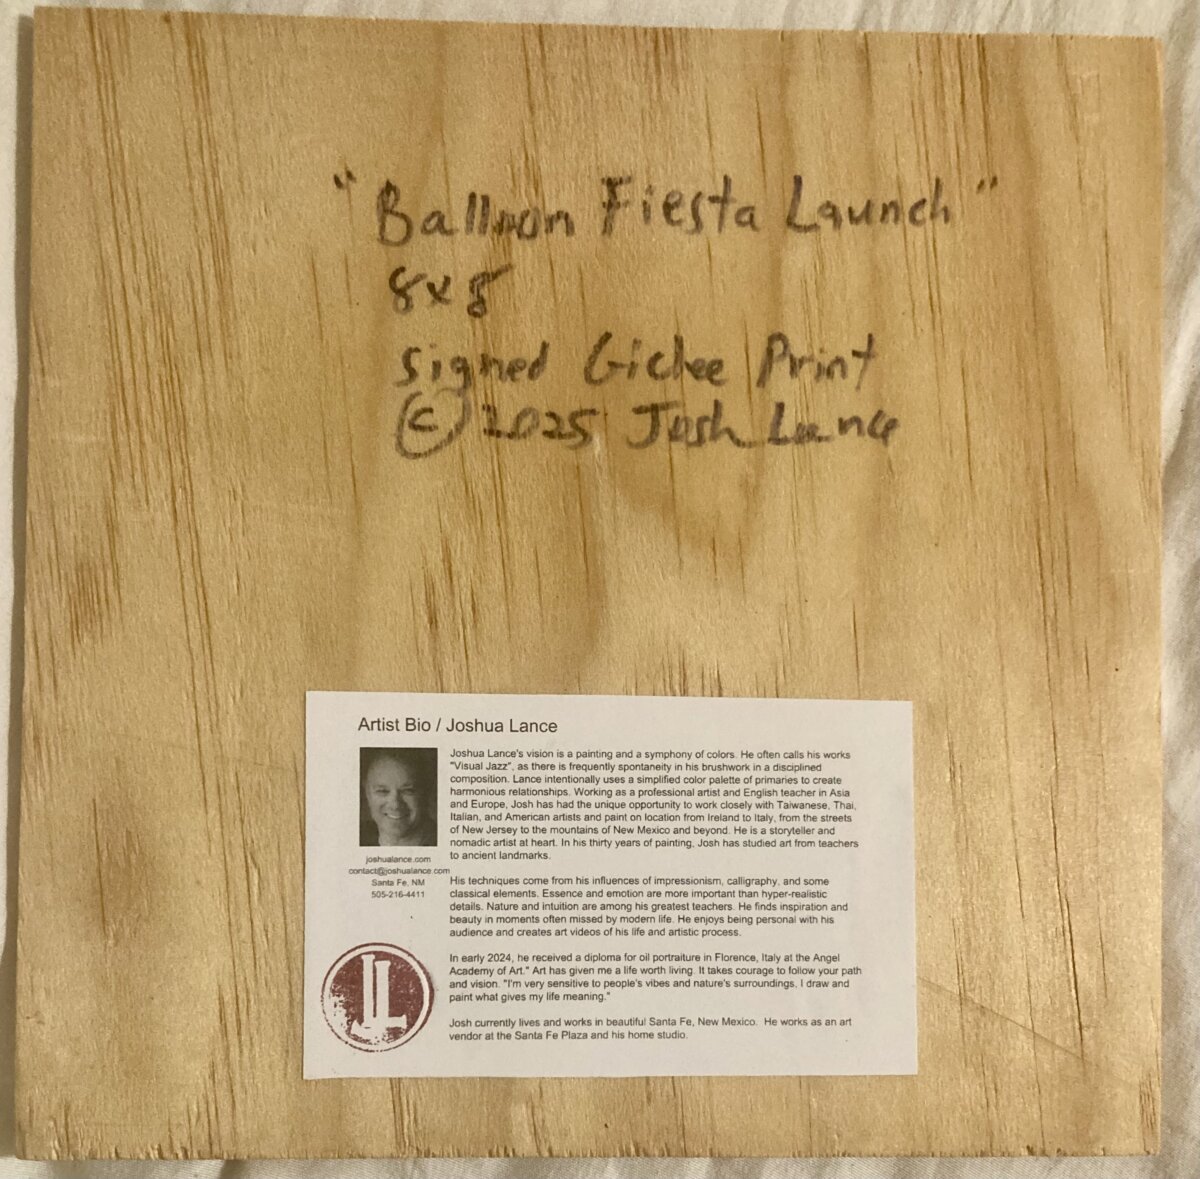 "Balloon Fiesta Launch"
8x8
Signed Giclee Print
© 2025 Josh Lance
Artist Bio / Joshua Lance
Joshua Lance's vision is a painting and a symphony of colors. He often calls his works
"Visual Jazz", as there is frequently spontaneity in his brushwork in a disciplined
composition. Lance intentionally uses a simplified color palette of primaries to create
harmonious relationships. Working as a professional artist and English teacher in Asia
and Europe, Josh has had the unique opportunity to work closely with Taiwanese, Thai,
Italian, and American artists and paint on location from Ireland to Italy, from the streets
of New Jersey to the mountains of New Mexico and beyond. He is a storyteller and
nomadic artist at heart. In his thirty years of painting, Josh has studied art from teachers
to ancient landmarks.
joshualance.com
contact@joshualance.com
Santa Fe, NM
505-216-4411
His techniques come from his influences of impressionism, calligraphy, and some
classical elements. Essence and emotion are more important than hyper-realistic
details. Nature and intuition are among his greatest teachers. He finds inspiration and
beauty in moments often missed by modern life. He enjoys being personal with his
audience and creates art videos of his life and artistic process.
In early 2024, he received a diploma for oil portraiture in Florence, Italy at the Angel
Academy of Art." Art has given me a life worth living. It takes courage to follow your path
and vision. "I'm very sensitive to people's vibes and nature's surroundings, I draw and
paint what gives my life meaning."
Josh currently lives and works in beautiful Santa Fe, New Mexico. He works as an art
vendor at the Santa Fe Plaza and his home studio.
JL